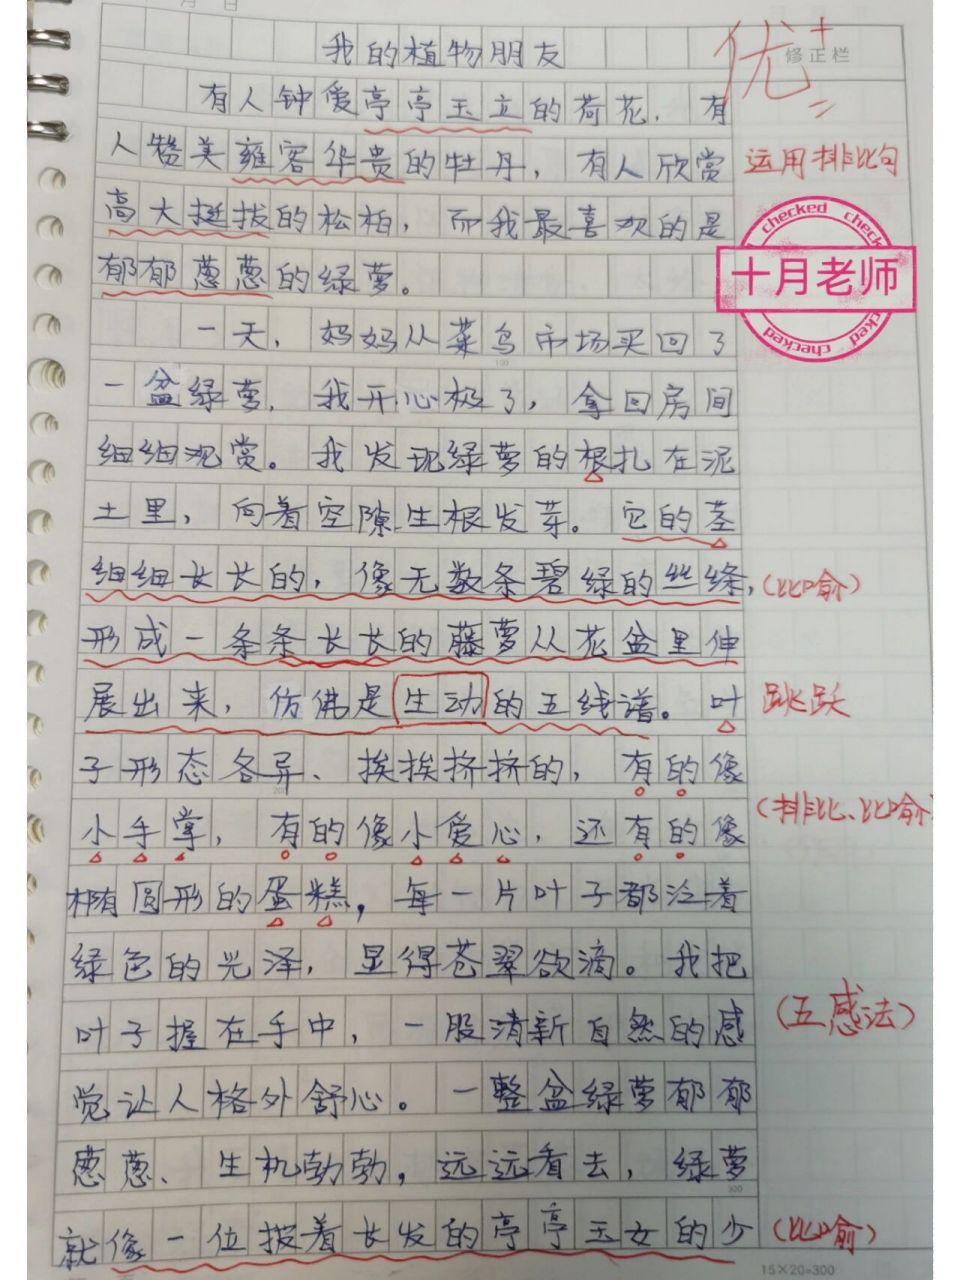 月 日
我的植物朋友
优+
修正栏
有人钟爱亭亭玉立的荷花，有
人赞美雍容华贵的牡丹，有人欣赏
运用排比句
高大挺拔的松柏，而我最喜欢的是
郁郁葱葱的绿萝。
checked checked
十月老师
checked
一天，妈妈从菜鸟市场买回了
100
一盆绿萝，我开心极了，拿回房间
细细观赏。我发现绿萝的根扎在泥
土里，向着空隙生根发芽。它的茎
细细长长的，像无数条碧绿的丝绦，
(比喻)
形成一条条长长的藤萝从花盆里伸
展出来，仿佛是生动的五线谱。叶
跳跃
子形态各异、挨挨挤挤的，有的像
200
(排比、比喻)
小手掌，有的像小爱心，还有的像
椭圆形的蛋糕，每一片叶子都泛着
绿色的光泽，显得苍翠欲滴。我把
叶子握在手中，一股清新自然的感
(五感法)
觉让人格外舒心。一整盆绿萝郁郁
葱葱、生机勃勃，远远看去，绿萝
300
就像一位披着长发的亭亭玉女的少
(比喻)
15×20=300